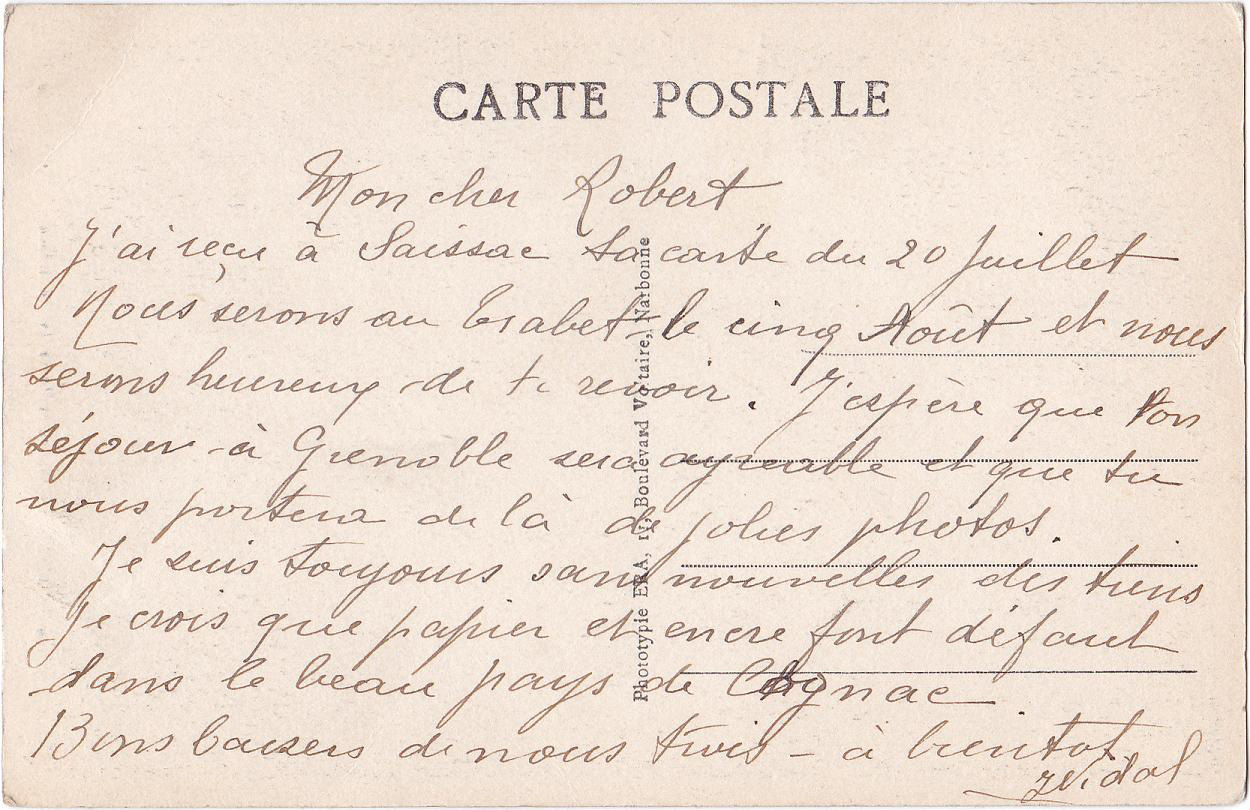 CARTE POSTALE
Mon cher Robert
J'ai reçu à Saissac ta carte du 20 Juillet
Nous serons au Trabet le cinq Août et nous
serons heureux de te revoir. J'espère que ton
séjour à Grenoble sera agréable et que tu
nous portera de là de jolies photos.
Je suis toujours sans nouvelles des tiens
Je crois que papier et encre font défaut
dans le beau pays de Cognac
Bons baisers de nous trois - à bientot
Vidal
Phototypie ERA, 17, Boulevard Voltaire, Narbonne